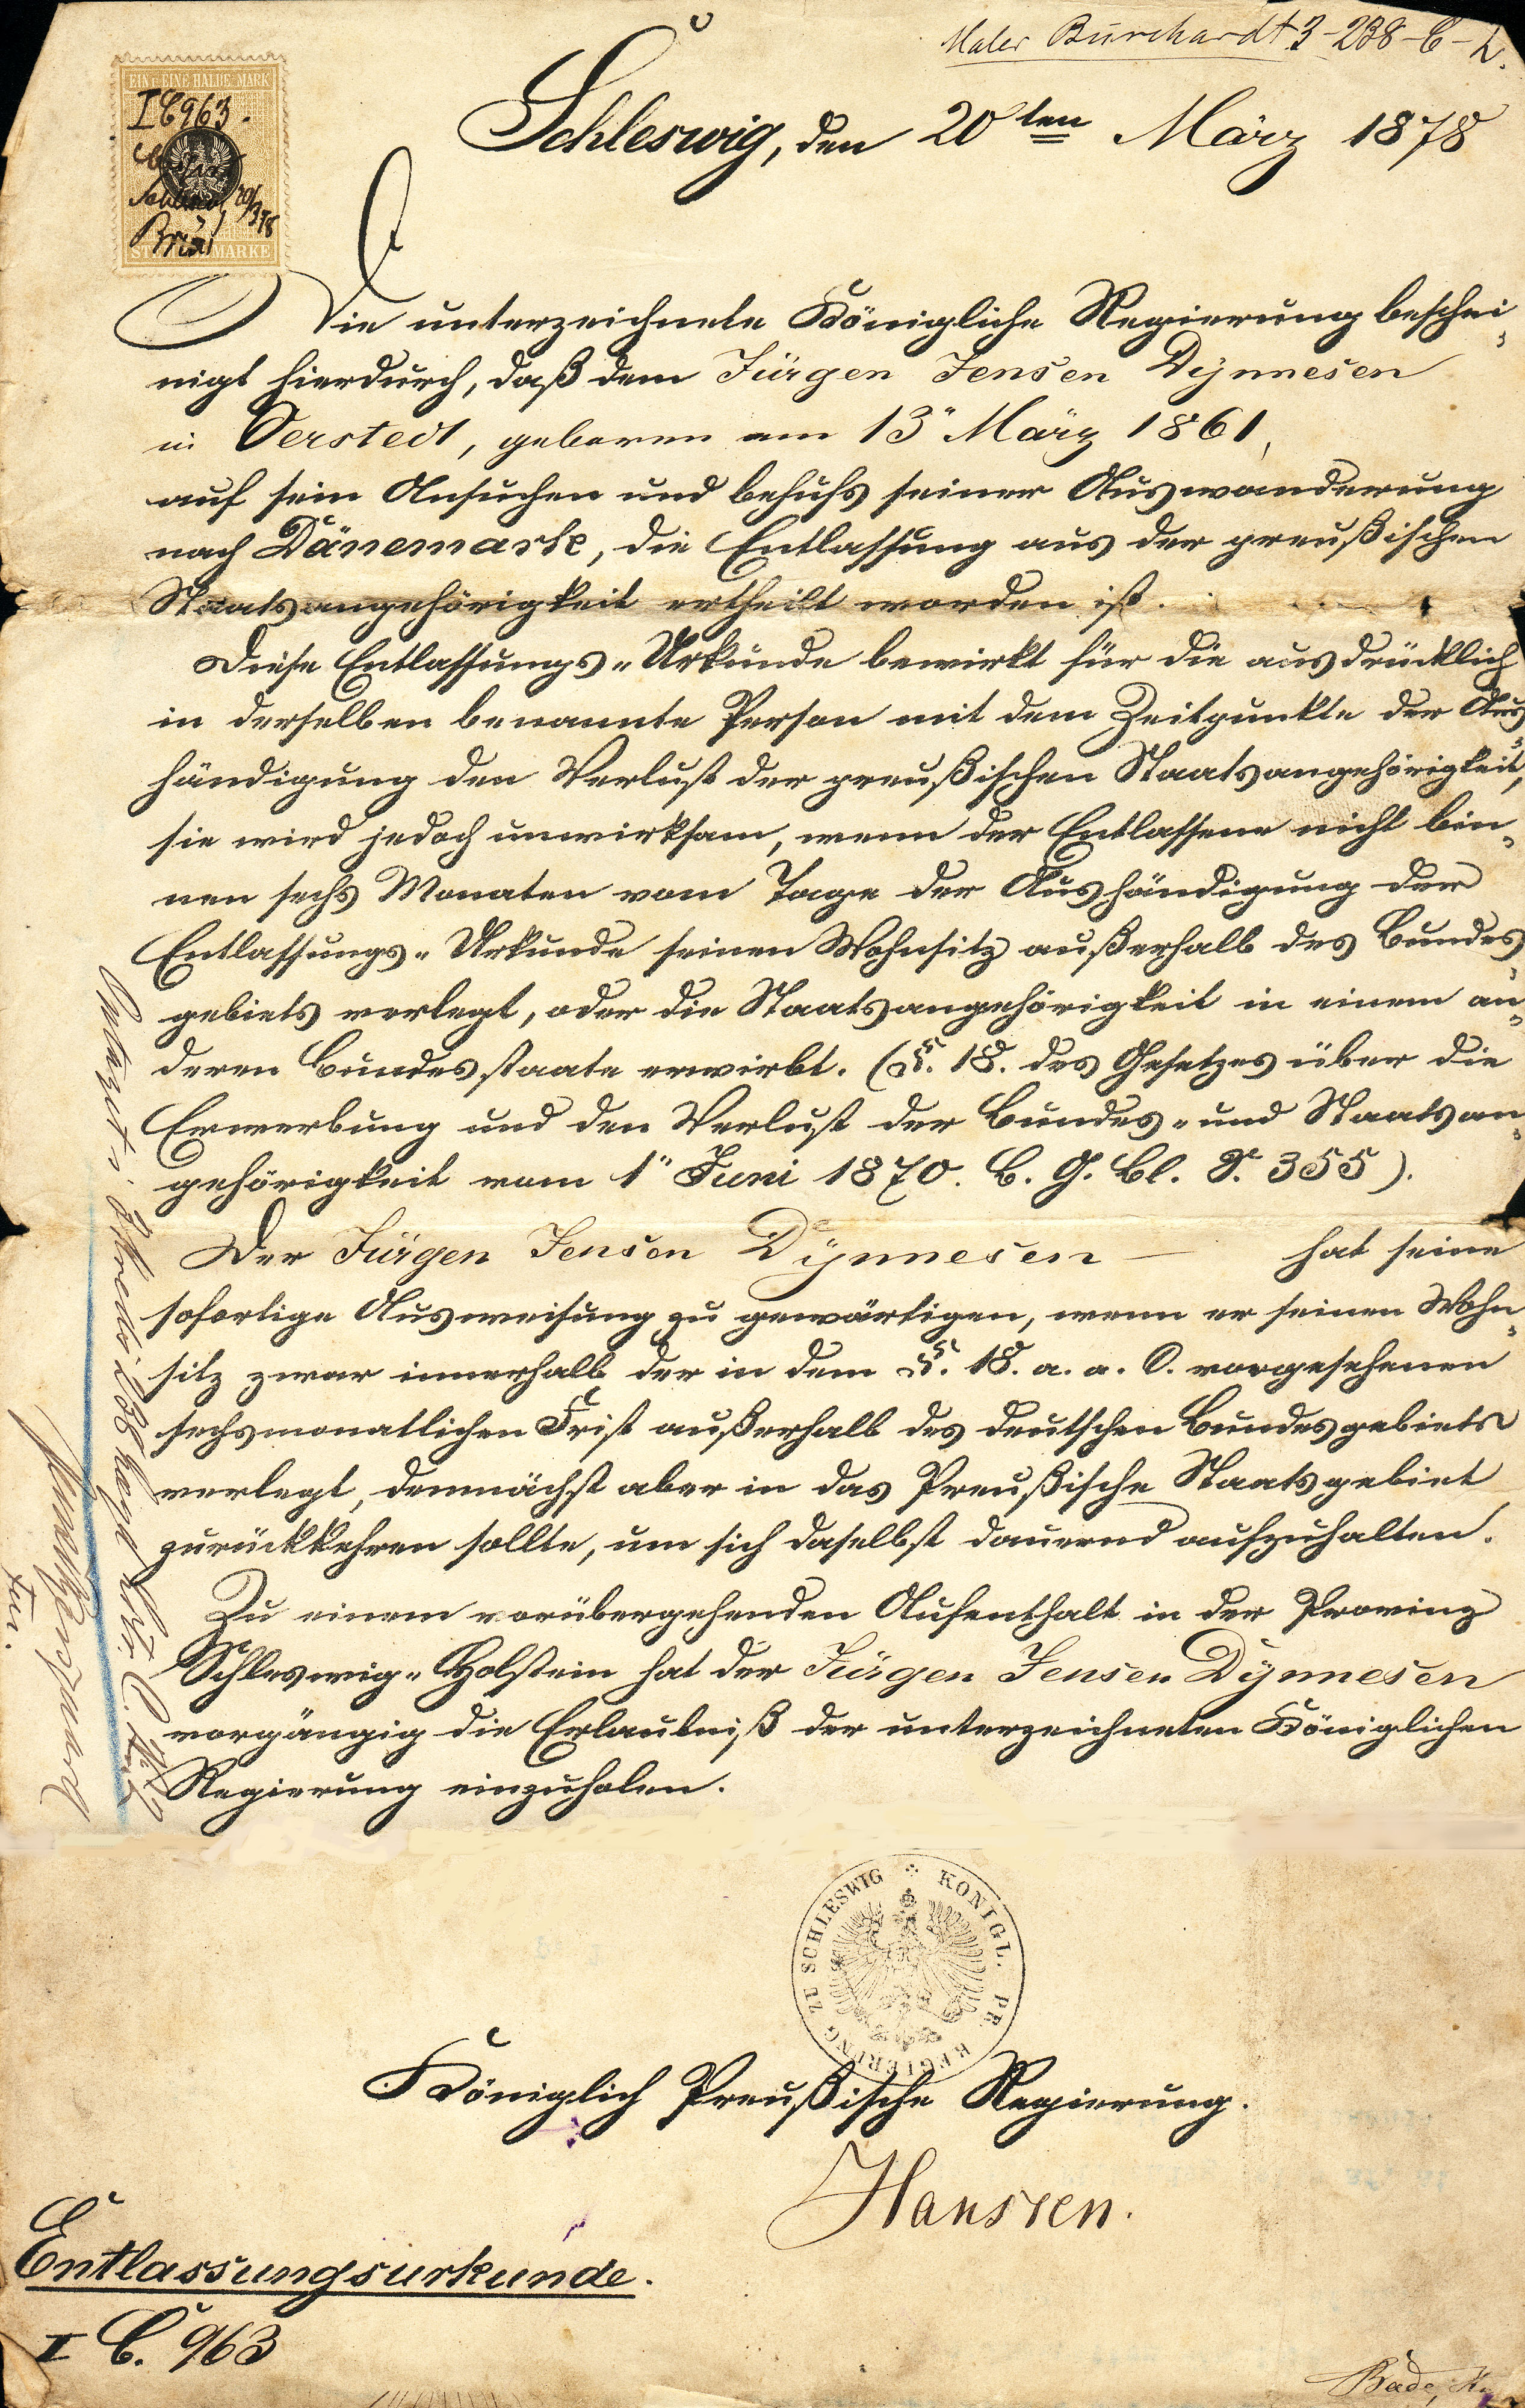 Maler Burchardt 3-238-C-L.
EIN u. EINE HALBE MARK
I C 963.
20/3 78
MARKE
Schleswig, den 20ten März 1878
Die unterzeichnete Königliche Regierung beschei-
nigt hierdurch, daß dem Jürgen Jensen Dynnesen
in Oerstedt, geboren am 13" März 1861,
auf sein Ansuchen und behufs seiner Auswanderung
nach Dänemark, die Entlassung aus der preußischen
Staatsangehörigkeit ertheilt worden ist.
Diese Entlassungs-Urkunde bewirkt für die ausdrücklich
in derselben benannte Person mit dem Zeitpunkte der Aus-
händigung den Verlust der preußischen Staatsangehörigkeit,
sie wird jedoch unwirksam, wenn der Entlassene nicht bin-
nen sechs Monaten vom Tage der Aushändigung der
Entlassungs-Urkunde seinen Wohnsitz außerhalb des Bundes-
gebiets verlegt, oder die Staatsangehörigkeit in einem an-
deren Bundesstaate erwirbt. (§. 18. des Gesetzes über die
Erwerbung und den Verlust der Bundes- und Staatsan-
gehörigkeit vom 1" Juni 1870. B. G. Bl. S. 355).
Der Jürgen Jensen Dynnesen — hat seine
sofortige Ausweisung zu gewärtigen, wenn er seinen Wohn-
sitz zwar innerhalb der in dem §. 18. a. a. O. vorgesehenen
sechsmonatlichen Frist außerhalb des deutschen Bundesgebiets
verlegt, demnächst aber in das Preußische Staatsgebiet
zurückkehren sollte, um sich daselbst dauernd aufzuhalten.
Zu einem vorübergehenden Aufenthalt in der Provinz
Schleswig-Holstein hat der Jürgen Jensen Dynnesen
vorgängig die Erlaubniß der unterzeichneten Königlichen
Regierung einzuholen.
KÖNIGL. PR. REGIERUNG ZU SCHLESWIG
Königlich Preußische Regierung.
Hanssen.
Entlassungsurkunde.
I C. 963
Bade